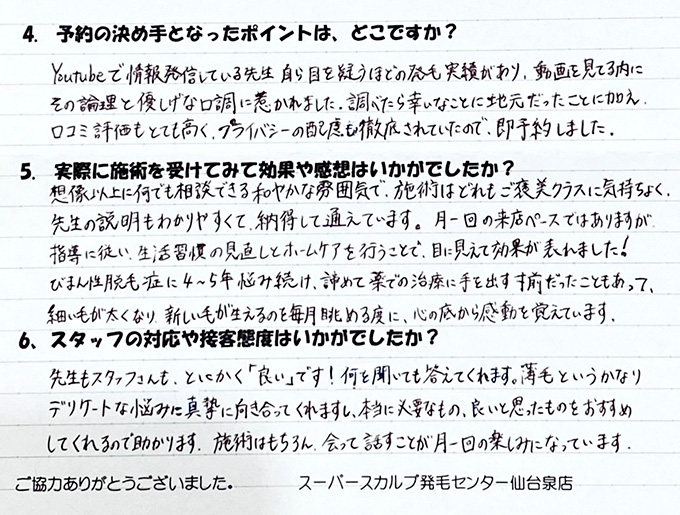 4. 予約の決め手となったポイントは、どこですか？
Youtubeで情報発信している先生自ら目を疑うほどの発毛実績があり、動画を見てる内に
その論理と優しげな口調に惹かれました。調べたら幸いなことに地元だったことに加え、
口コミ評価もとても高く、プライバシーの配慮も徹底されていたので、即予約しました。
5. 実際に施術を受けてみて効果や感想はいかがでしたか？
想像以上に何でも相談できる和やかな雰囲気で、施術はどれもご褒美クラスに気持ちよく、
先生の説明もわかりやすくて、納得して通えています。月一回の来店ペースではありますが、
指導に従い、生活習慣の見直しとホームケアを行うことで、目に見えて効果が表れました！
びまん性脱毛症に4～5年悩み続け、諦めて薬での治療に手を出す寸前だったこともあって、
細い毛が太くなり、新しい毛が生えるのを毎月眺める度に、心の底から感動を覚えています。
6、スタッフの対応や接客態度はいかがでしたか？
先生もスタッフさんも、とにかく「良い」です！何を聞いても答えてくれます。薄毛というかなり
デリケートな悩みに真摯に向き合ってくれますし、本当に必要なもの、良いと思ったものをおすすめ
してくれるので助かります。施術はもちろん、会って話すことが月一回の楽しみになっています。
ご協力ありがとうございました。 スーパースカルプ発毛センター仙台泉店